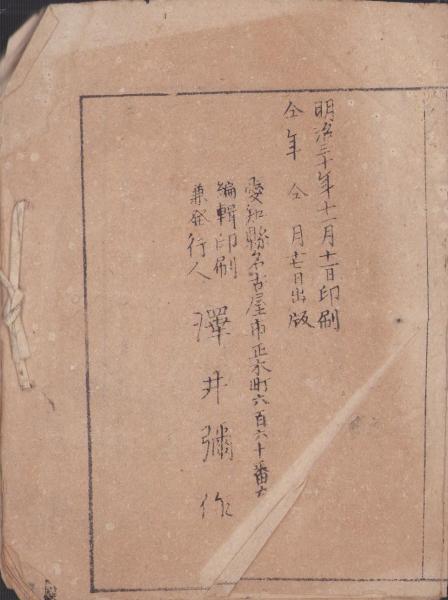 明治三十年十一月十一日印刷
仝年仝月十七日出版
愛知縣名古屋市正木町六百六十番
編輯印刷
兼発行人
澤井彌作